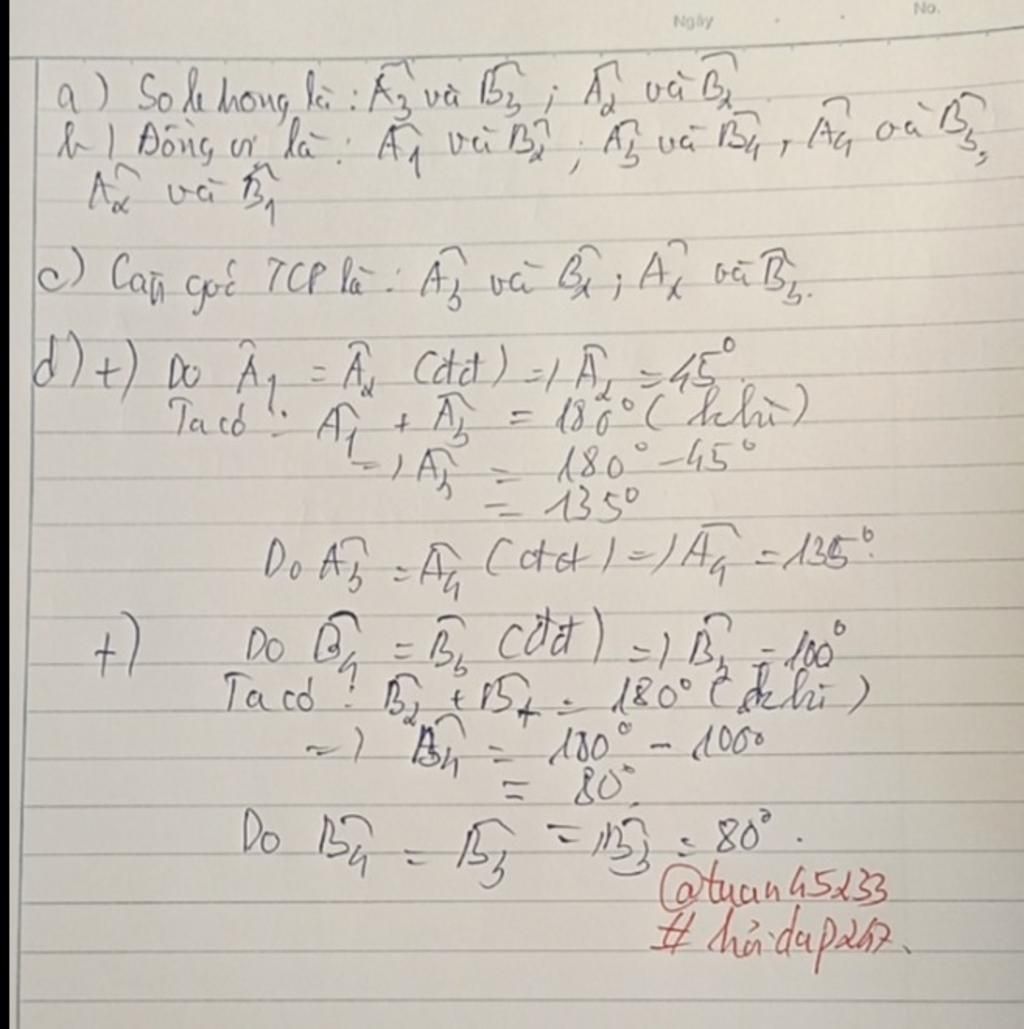 Ngày
No.
a) So le trong là: A₃ và B₃; A₂ và B₂
b) Đồng vị là: A₁ và B₂; A₃ và B₄, A₄ và B₃,
A₂ và B₁
c) Cặp góc TCP là: A₃ và B₂; A₂ và B₃.
d) +) Do A₁ = A₂ (đđ) => A₂ = 45°.
Ta có: A₁ + A₃ = 180° (kbù)
=> A₃ = 180° - 45°
= 135°
Do A₃ = A₄ (đđ) => A₄ = 135°.
+) Do = (đđ) => = 100°
Ta có: B₂ + = 180° (kbù)
=> B₄ = 180° - 100°
= 80°.
Do B₄ = B₃ => B₃ = 80°.
@tuan45233
# hoidap247.